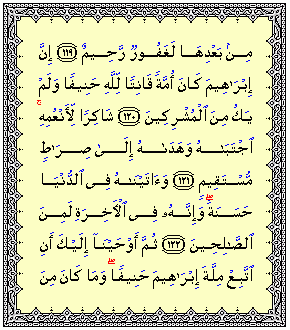 مِنۢ بَعْدِهَا لَغَفُورٌ رَّحِيمٌ ﴿١١٩﴾ إِنَّ
إِبْرَٰهِيمَ كَانَ أُمَّةً قَانِتًا لِّلَّهِ حَنِيفًا وَلَمْ
يَكُ مِنَ ٱلْمُشْرِكِينَ ﴿١٢٠﴾ شَاكِرًا لِّأَنْعُمِهِ
ٱجْتَبَىٰهُ وَهَدَىٰهُ إِلَىٰ صِرَٰطٍ
مُّسْتَقِيمٍ ﴿١٢١﴾ وَءَاتَيْنَٰهُ فِى ٱلدُّنْيَا
حَسَنَةً ۖ وَإِنَّهُۥ فِى ٱلْءَاخِرَةِ لَمِنَ
ٱلصَّٰلِحِينَ ﴿١٢٢﴾ ثُمَّ أَوْحَيْنَآ إِلَيْكَ أَنِ
ٱتَّبِعْ مِلَّةَ إِبْرَٰهِيمَ حَنِيفًا ۖ وَمَا كَانَ مِنَ